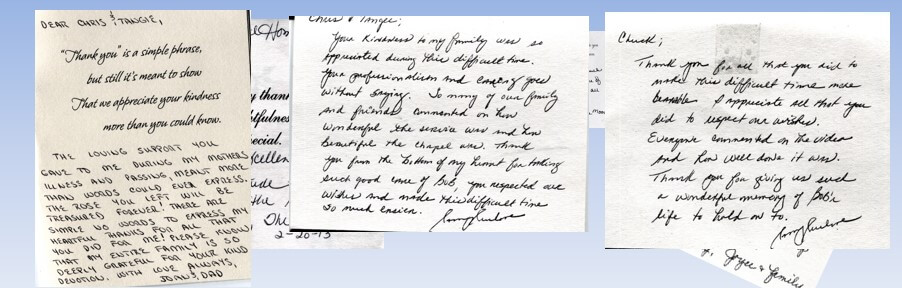 DEAR CHRIS & TANGIE,
"Thank you" is a simple phrase,
but still it's meant to show
That we appreciate your kindness
more than you could know.
THE LOVING SUPPORT YOU
GAVE TO ME DURING MY MOTHERS
ILLNESS AND PASSING, MEANT MORE
THAN WORDS COULD EVER EXPRESS.
THE ROSE YOU LEFT WILL BE
TREASURED FOREVER! THERE ARE
SIMPLE NO WORDS TO EXPRESS MY
HEARTFUL THANKS FOR ALL THAT
YOU DID FOR ME! PLEASE KNOW
THAT MY ENTIRE FAMILY IS SO
DEEPLY GRATEFUL FOR YOUR KIND
DEVOTION. WITH LOVE ALWAYS,
DAD
y thank
tfulness
ecial.
cellen
2-20-13
Chris & Tangie;
Your kindness to my family was so
appreciated during this difficult time.
Your professionalism and caring goes
without saying. So many of our family
and friends commented on how
wonderful the service was and how
beautiful the chapel was. Thank
you from the bottom of my heart for taking
such good care of Bob, you respected our
wishes and made this difficult time
so much easier.
Chuck;
Thank you for all that you did to
make this difficult time more
bearable. I appreciate all that you
did to respect our wishes.
Everyone commented on the video
and how well done it was.
Thank you for giving us such
a wonderful memory of Bob's
life to hold on to.
Joyce & family